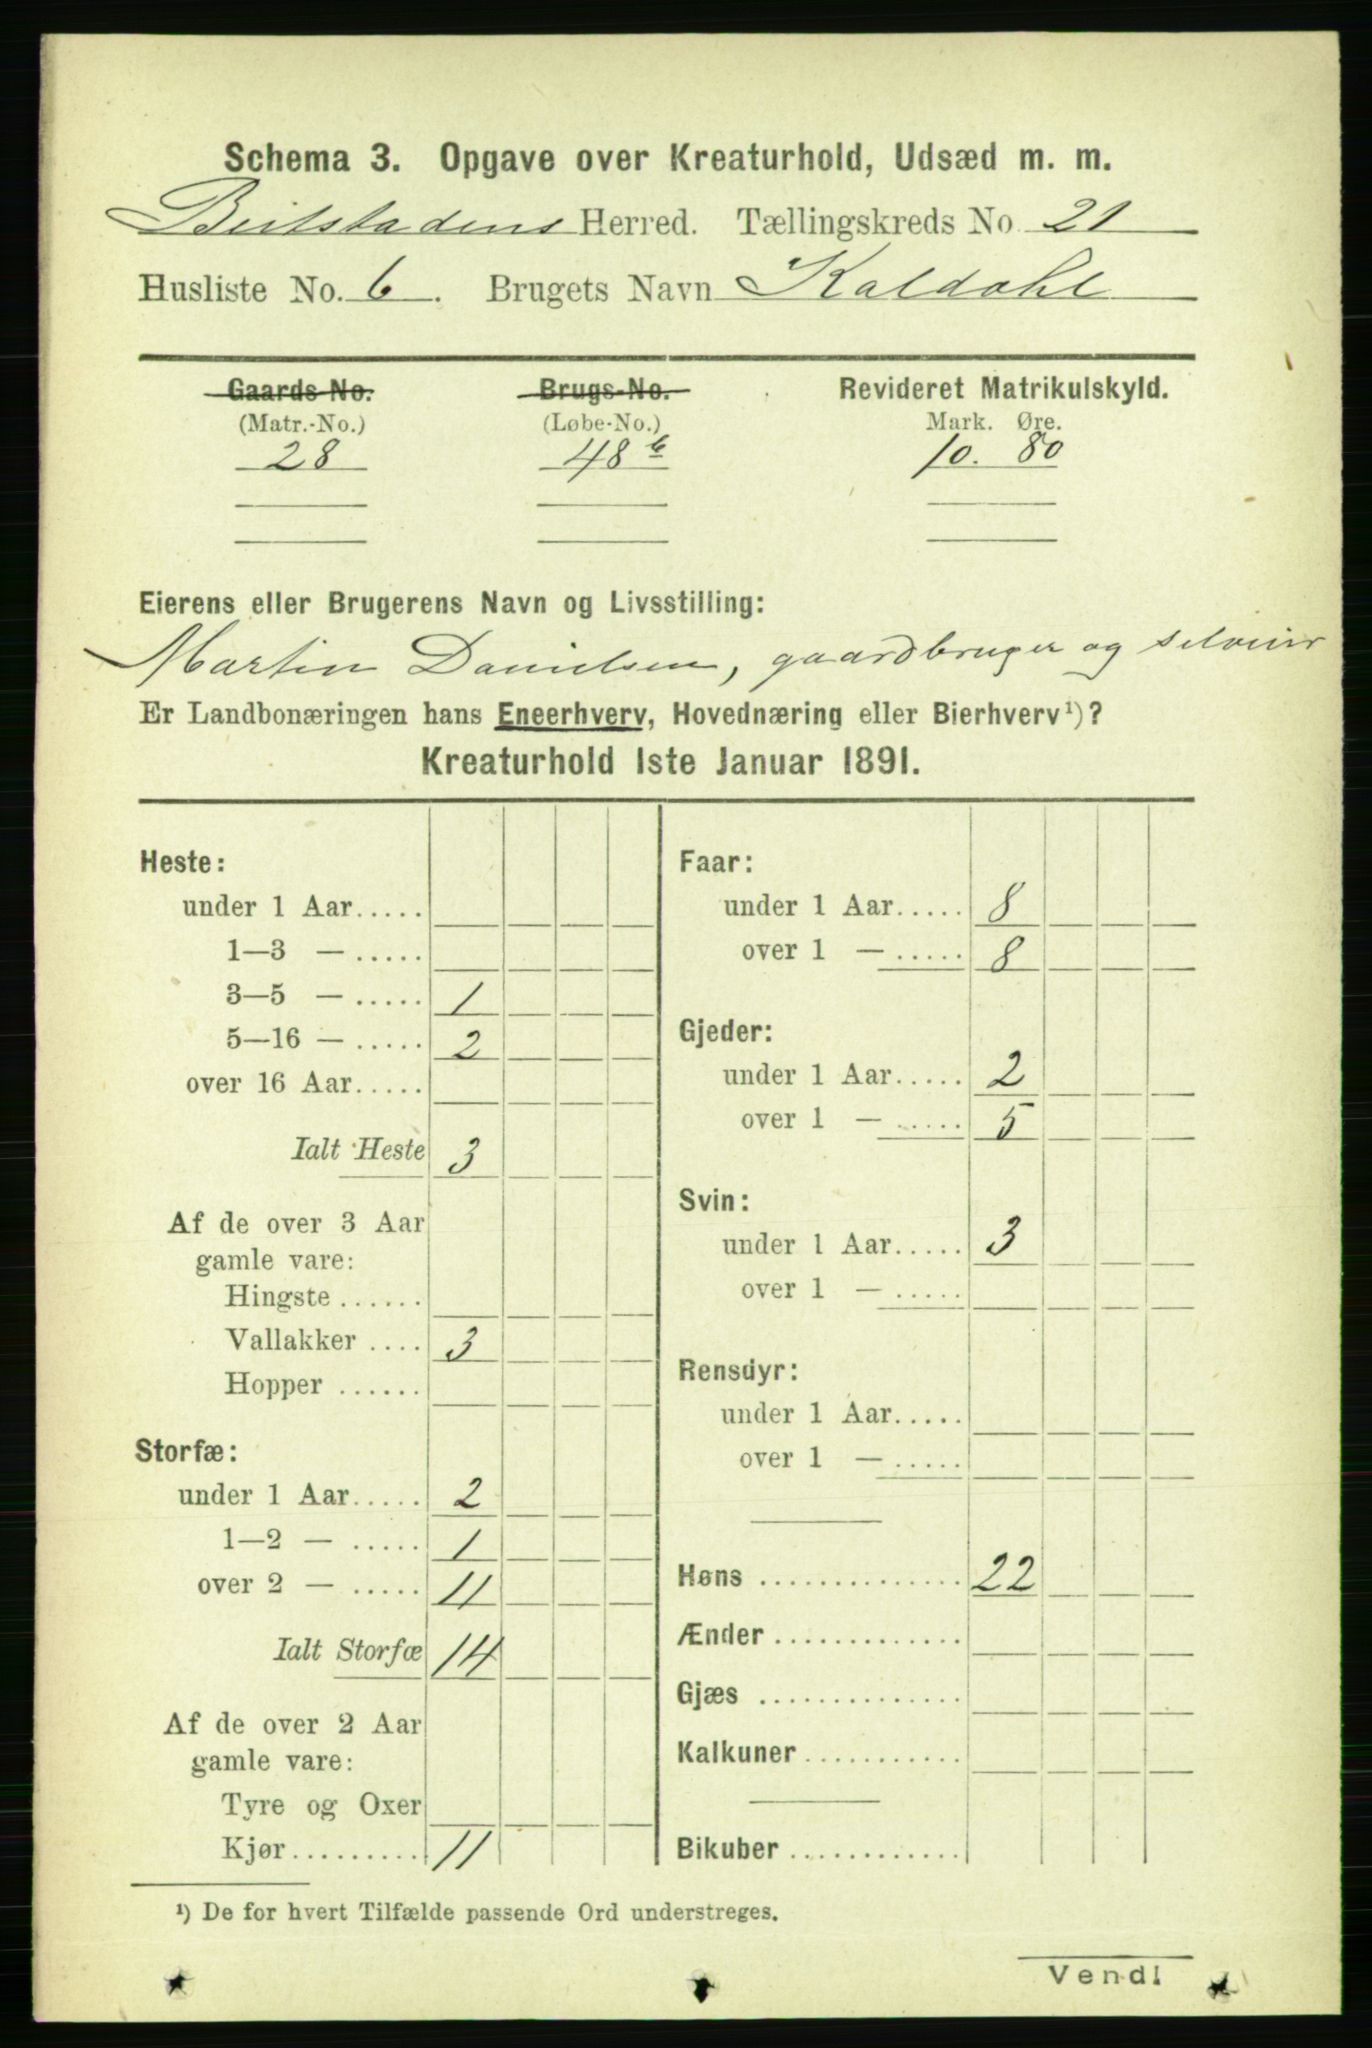 Schema 3. Opgave over Kreaturhold, Udsæd m. m.
Beitstadens Herred. Tællingskreds No. 21
Husliste No. 6. Brugets Navn Kaldahl
Gaards-No. Brugs-No. Revideret Matrikulskyld.
(Matr.-No.) (Løbe-No.) Mark. Øre.
28 48 b 10. 80
Eierens eller Brugerens Navn og Livsstilling:
Martin Danielsen, gaardbruger og selveier
Er Landbonæringen hans Eneerhverv, Hovednæring eller Bierhverv¹)?
Kreaturhold 1ste Januar 1891.
Heste:
under 1 Aar.....
1—3 — .....
3—5 — ..... 1
5—16 — ..... 2
over 16 Aar.....
Ialt Heste 3
Af de over 3 Aar
gamle vare:
Hingste ......
Vallakker .... 3
Hopper ......
Storfæ:
under 1 Aar..... 2
1—2 — ..... 1
over 2 — ..... 11
Ialt Storfæ 14
Af de over 2 Aar
gamle vare:
Tyre og Oxer
Kjør......... 11
Faar:
under 1 Aar..... 8
over 1 — ..... 8
Gjeder:
under 1 Aar..... 2
over 1 — ..... 5
Svin:
under 1 Aar..... 3
over 1 — .....
Rensdyr:
under 1 Aar.....
over 1 — .....
Høns .............. 22
Ænder .............
Gjæs ..............
Kalkuner ...........
Bikuber ............
¹) De for hvert Tilfælde passende Ord understreges.
Vend!